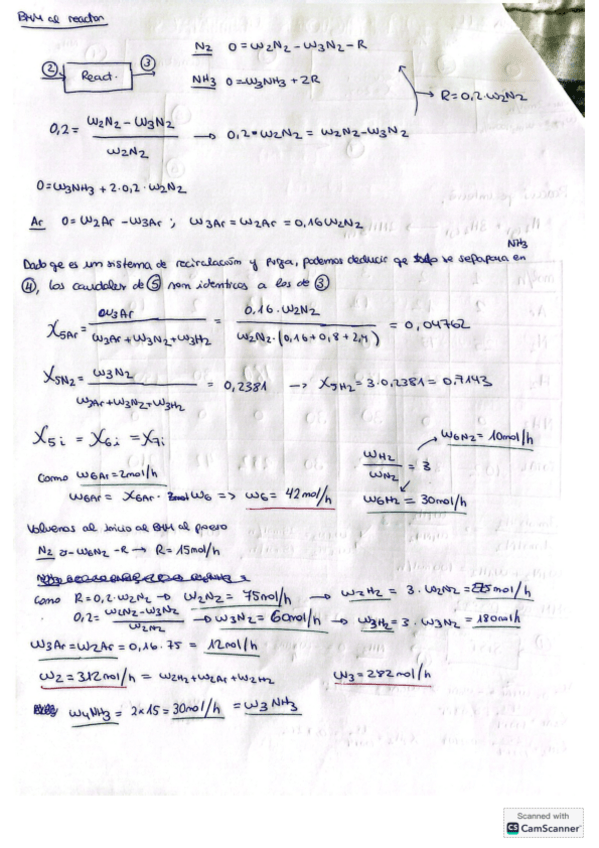 BHM al reactor
N2 0 = W2N2 - W3N2 - R
2 React. 3
NH3 0 = W3NH3 + 2R
R = 0,2·W2N2
0,2 = (W2N2 - W3N2) / W2N2 → 0,2·W2N2 = W2N2 - W3N2
0 = W3NH3 + 2·0,2·W2N2
Ar 0 = W2Ar - W3Ar ; W3Ar = W2Ar = 0,16 W2N2
NH3
Dado qe es un sistema de recirculación y purga, podemos deducir qe se separa en
④, los caudales de ⑤ son identicos a los de ③
X5Ar = W3Ar / (W3Ar + W3N2 + W3H2) = 0,16·W2N2 / (W2N2·(0,16 + 0,8 + 2,4)) = 0,04762
X5N2 = W3N2 / (W3Ar + W3N2 + W3H2) = 0,2381 → X5H2 = 3·0,2381 = 0,7143
X5i = X6i = X7i
WH2 / WN2 = 3
W6N2 = 10mol/h
Como W6Ar = 2mol/h
W6Ar = X6Ar · W6 => W6 = 42mol/h
W6H2 = 30mol/h
Volvemos al inicio al BHM al
N2 - W6N2 - R → R = 15mol/h
como R = 0,2·W2N2 → W2N2 = 75mol/h → W2H2 = 3·W2N2 = mol/h
0,2 = (W2N2 - W3N2) / W2N2 → W3N2 = 60mol/h → W3H2 = 3·W3N2 = 180mol/h
W3Ar = W2Ar = 0,16·75 = 12mol/h
W2 = 312mol/h = W2H2 + W2Ar + W2H2
W3 = 282mol/h
W4NH3 = 2x15 = 30mol/h = W3NH3
Scanned with
CS CamScanner